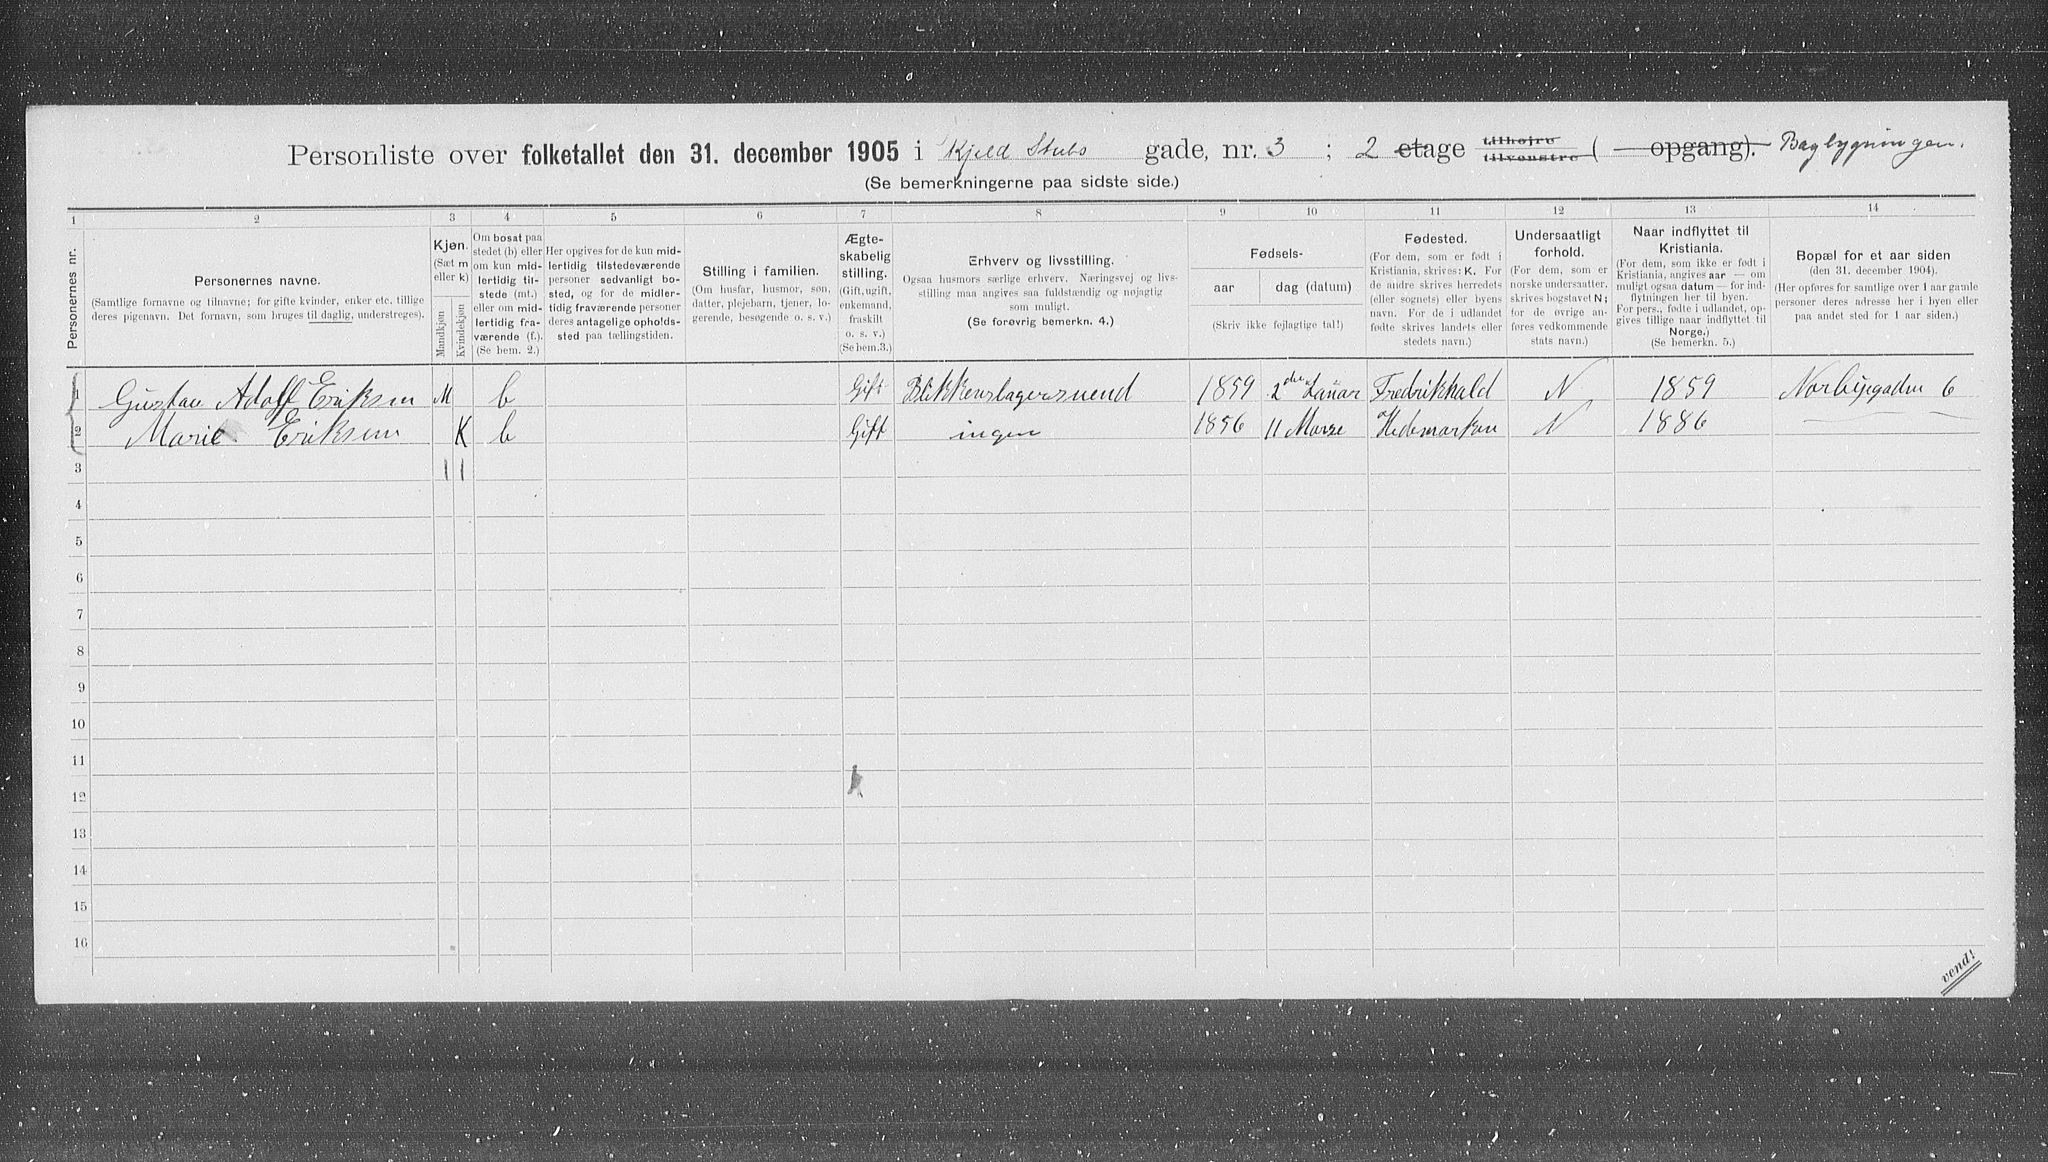 Personliste over folketallet den 31. december 1905 i Kjeld Stubs gade, nr. 3 ; 2 etage tilhøjre tilvenstre ( — opgang). Bagbygningen.
(Se bemerkningerne paa sidste side.)
1 2 3 4 5 6 7 8 9 10 11 12 13 14
Personernes nr.
Personernes navne.
(Samtlige fornavne og tilnavne; for gifte kvinder, enker etc. tillige
deres pigenavn. Det fornavn, som bruges til daglig, understreges).
Kjøn.
(Sæt m
eller k)
Mandkjøn
Kvindekjøn
Om bosat paa
stedet (b) eller
om kun mid-
lertidig til-
stede (mt.)
eller om mid-
lertidig fra-
værende (f.).
(Se bem. 2.)
Her opgives for de kun mid-
lertidig tilstedeværende
personer sedvanligt bo-
sted, og for de midler-
tidig fraværende personer
deres antagelige opholds-
sted paa tællingstiden.
Stilling i familien.
(Om husfar, husmor, søn,
datter, plejebarn, tjener, lo-
gerende, besøgende o. s. v.)
Ægte-
skabelig
stilling.
(Gift, ugift,
enkemand,
fraskilt
o. s. v.)
(Se bem.3.)
Erhverv og livsstilling.
Ogsaa husmors særlige erhverv. Næringsvej og livs-
stilling maa angives saa fuldstændig og nøjagtig
som muligt.
(Se forøvrig bemerkn. 4.)
Fødsels-
aar
dag (datum)
(Skriv ikke fejlagtige tal!)
Fødested.
(For dem, som er født i
Kristiania, skrives: K. For
de andre skrives herredets
(eller sognets) eller byens
navn. For de i udlandet
fødte skrives landets eller
stedets navn.)
Undersaatligt
forhold.
(For dem, som er
norske undersaatter,
skrives bogstavet N;
for de øvrige an-
føres vedkommende
stats navn.)
Naar indflyttet til
Kristiania.
(For dem, som ikke er født i
Kristiania, angives aar — om
muligt ogsaa datum — for ind-
flytningen her til byen.
For pers., fødte i udlandet, op-
gives tillige naar indflyttet til
Norge.)
(Se bemerkn. 5.)
Bopæl for et aar siden
(den 31. december 1904).
(Her opføres for samtlige over 1 aar gamle
personer deres adresse her i byen eller
paa andet sted for 1 aar siden.)
1 Gustav Adolf Eriksen M b Gift Blikkenslagersvend 1859 2den Januar Fredrikhald N 1859 Norbygaden 6
2 Marie Eriksen K b Gift ingen 1856 11 Mars Hedemarken N 1886 — —
3 1 1
4
5
6
7
8
9
10
11
12
13
14
15
16
vend!